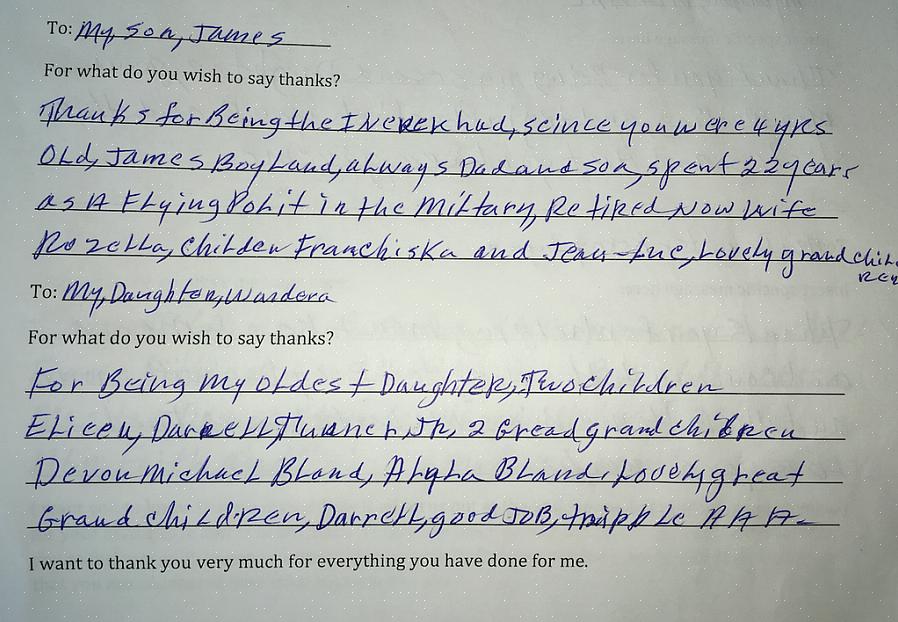 To: My, Son, James
For what do you wish to say thanks?
Thanks for Being the I Never had, scince you were 4 yrs
OLd, James Boy Land, always Dad and son, spent 22 years
as A FLying PoLit in the MiLtary, Retired Now Wife
RozeLLa, ChiLden Franchiska and Jean-Luc, LoveLy grandchiLd
Ren
To: My, Daughter, Wandera
For what do you wish to say thanks?
For Being My oLdest Daughter, Two children
ELieen, DarreLL, Turner, JR, 2 Gread grand children
Devon MichaeL BLand, BLand, LoveLy great
Grand chiLdRen, DarreLL, good JOB, tripple AAA-
I want to thank you very much for everything you have done for me.